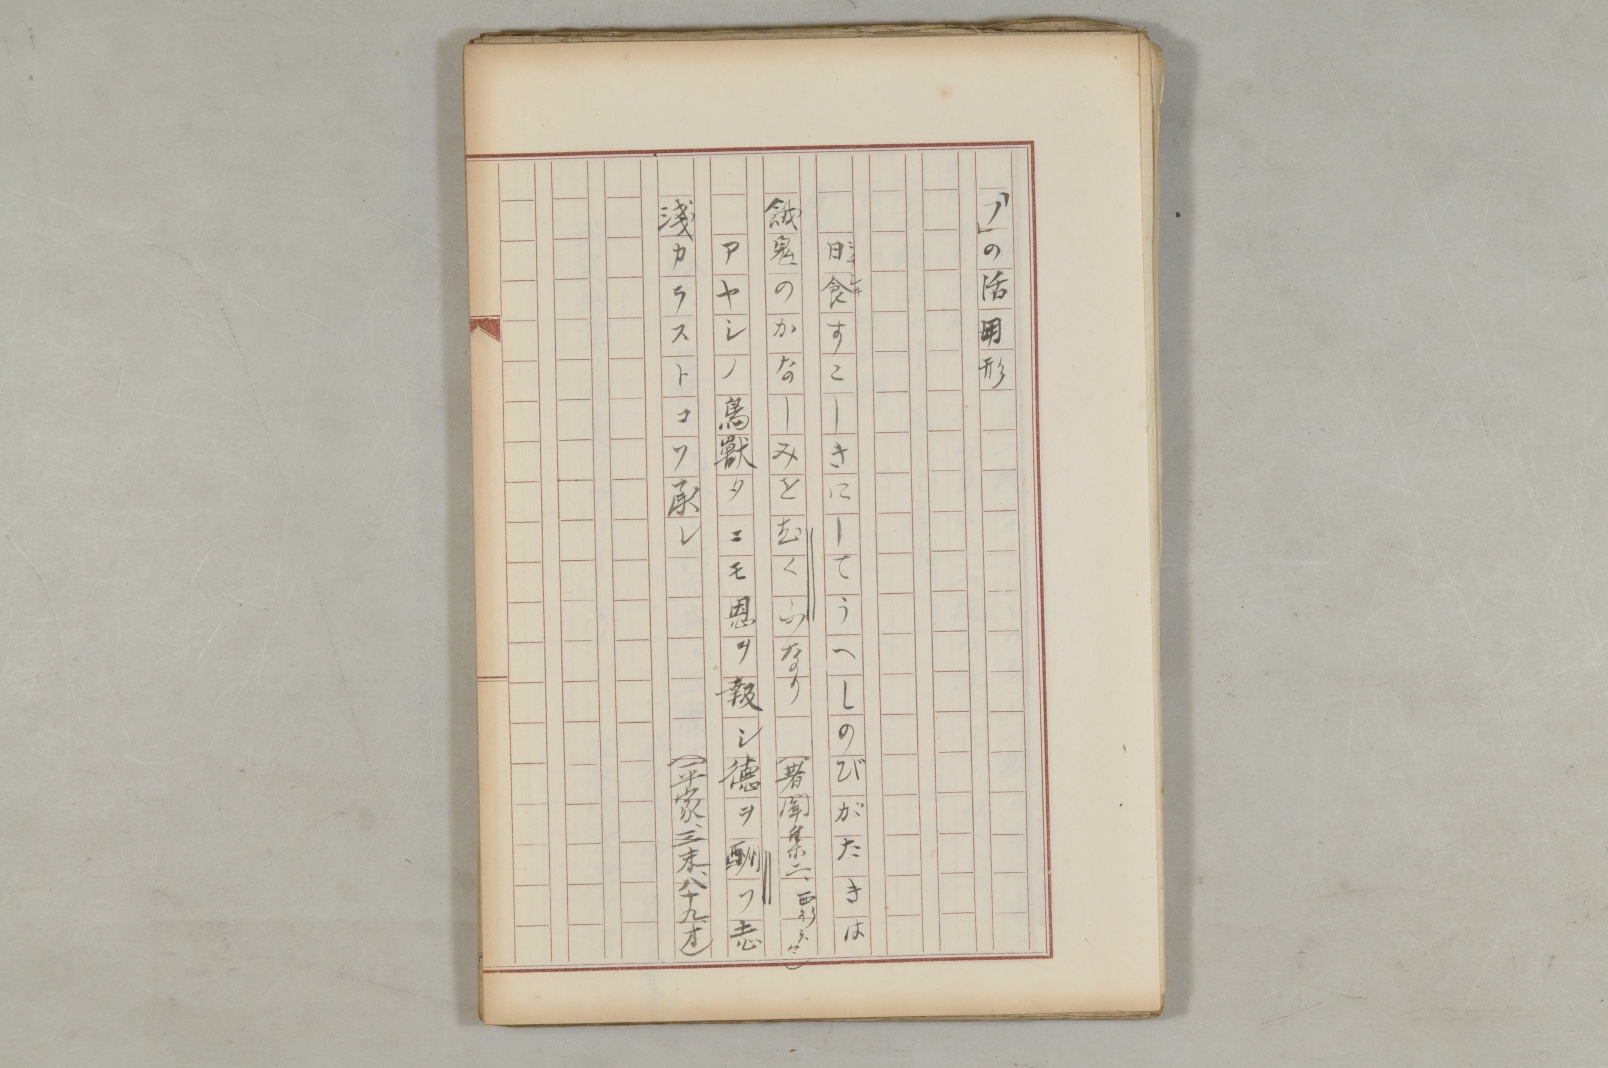 「フ」の活用形
日食すこしきにしてうへしのびがたきは
餓鬼のかなしみをむくふなり (著聞集二、西行
アヤシノ鳥獣タニモ恩ヲ報シ徳ヲ酬フ志
淺カラストコソ承レ (平家、三末、八十九オ)